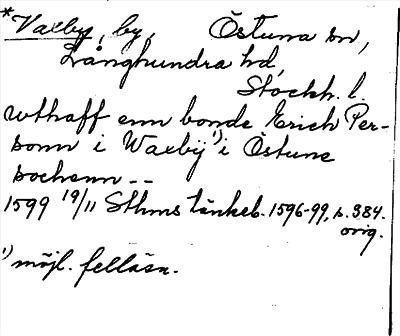 *Vaxby, by, Östuna sn,
Långhundra hd,
Stockh. l.
wthaff enn bonde Erich Per-
sonn i Waxbij¹⁾ i Östune
sochenn --
1599 19/11 Sthms tänkeb. 1596-99, s. 384.
orig.
¹⁾ möjl. felläsn.